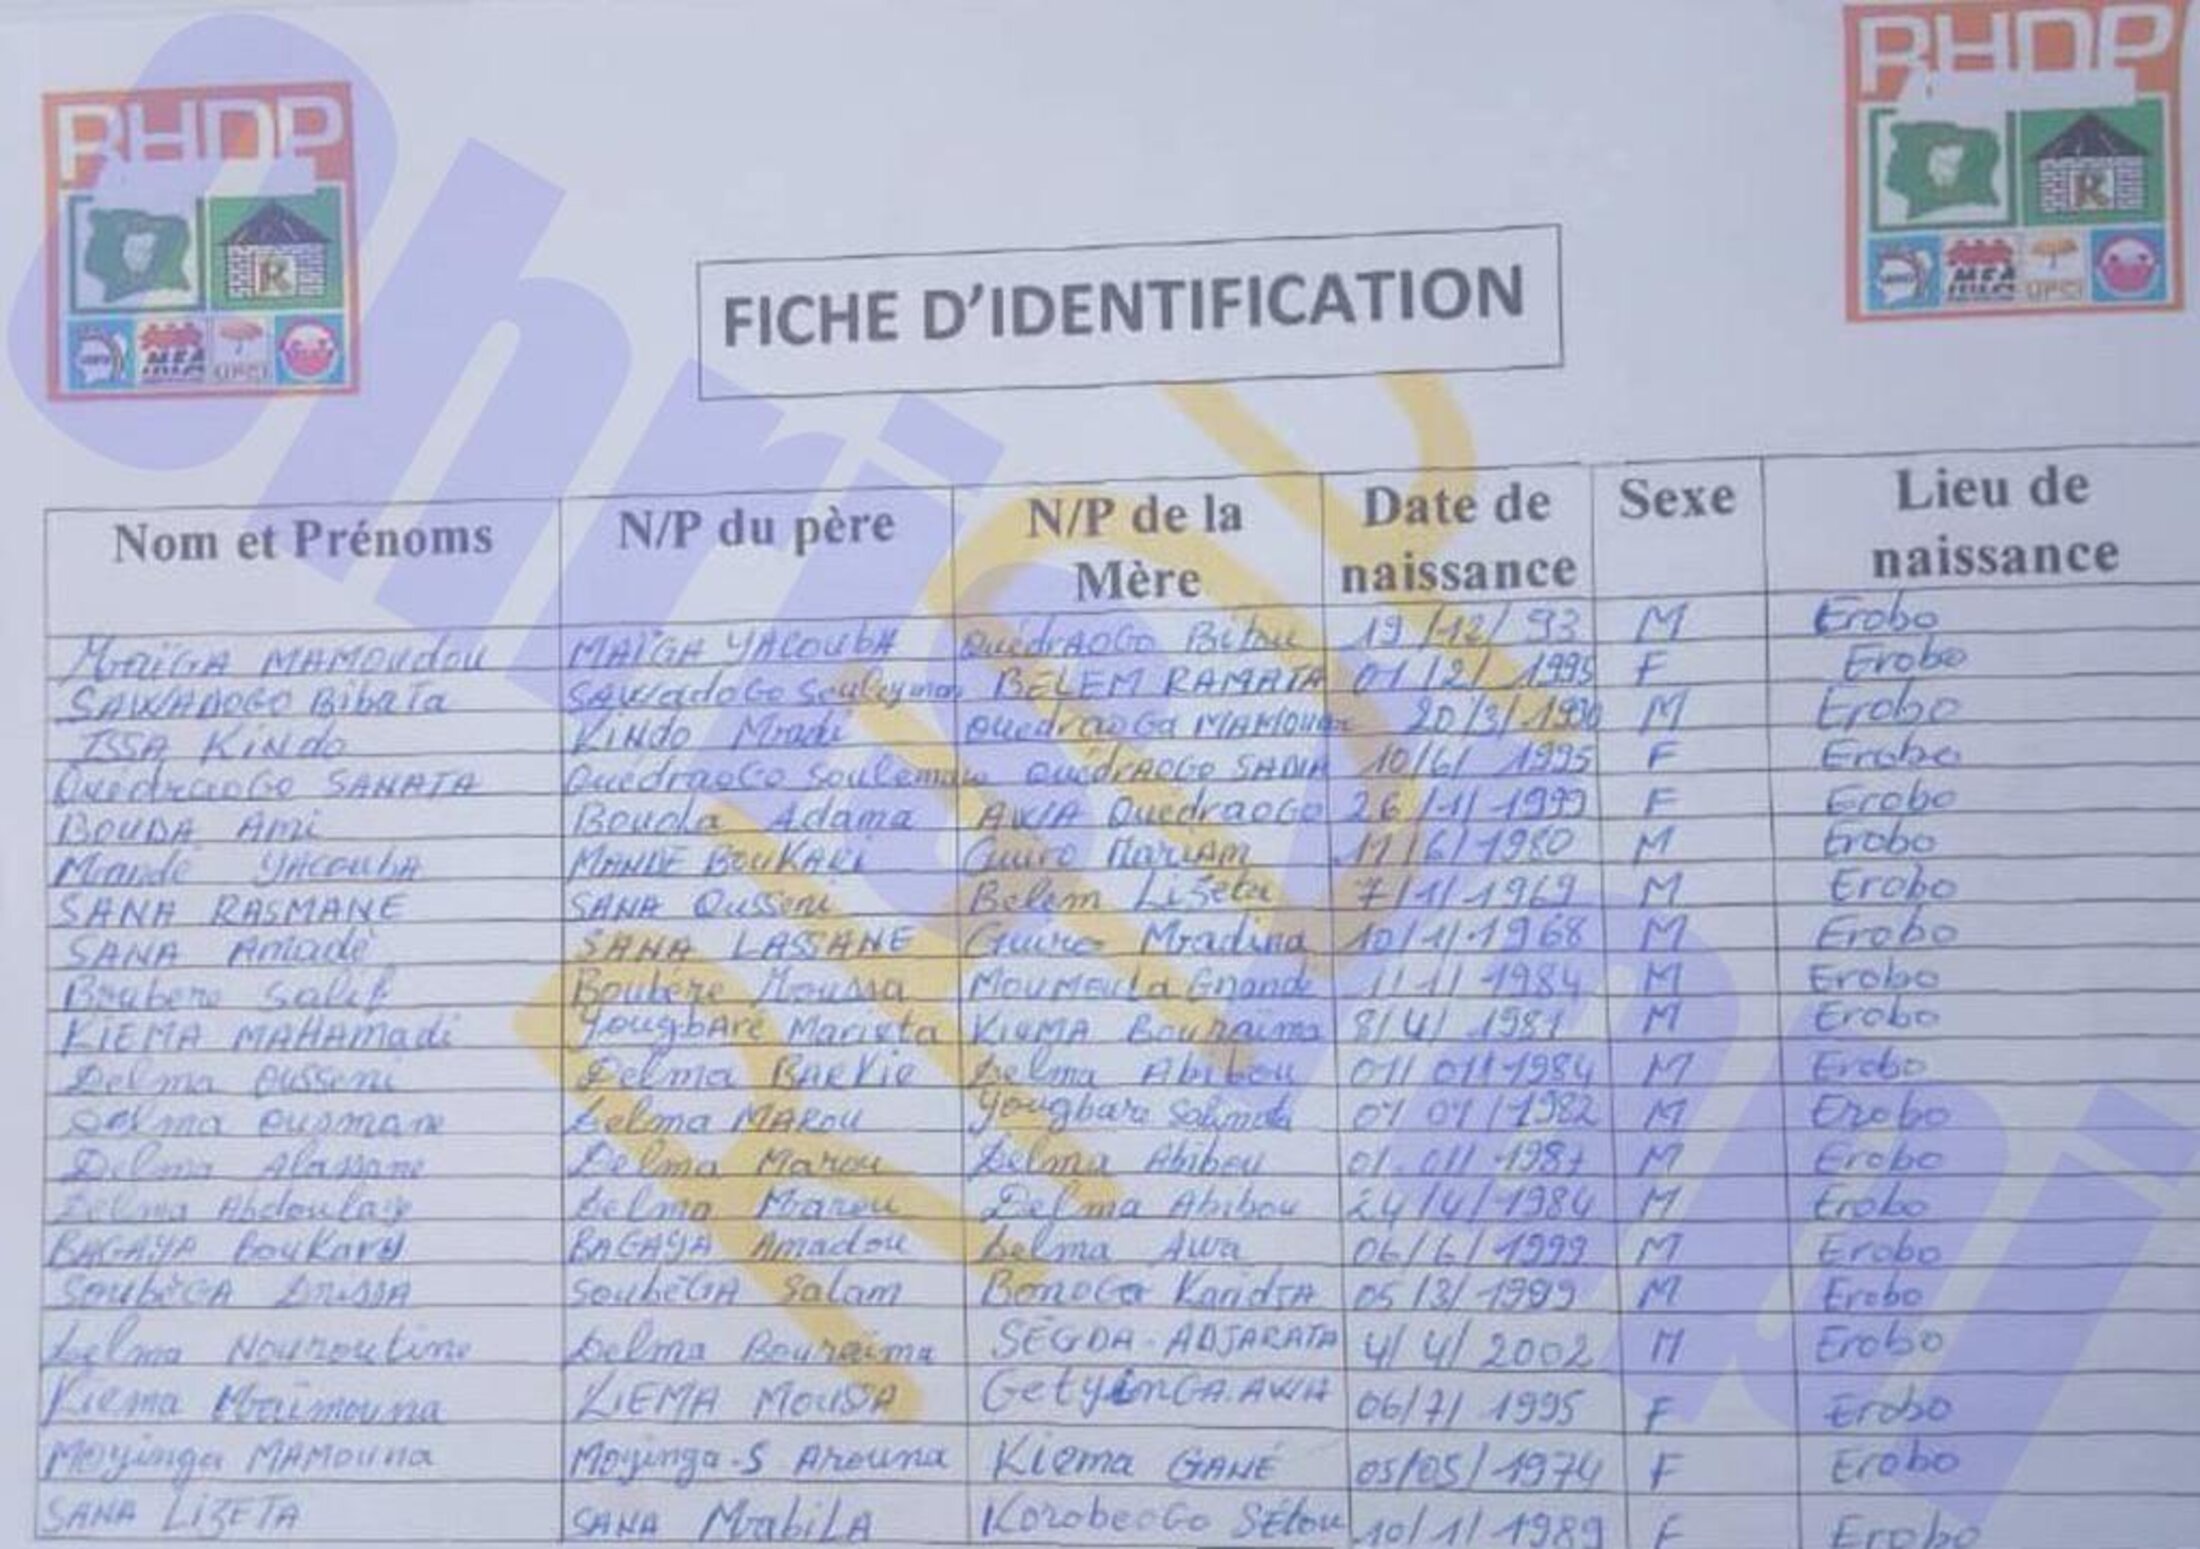 RHDP
RHDP
R
R
MFA
UPCI
MFA
UPCI
FICHE D'IDENTIFICATION
Nom et Prénoms N/P du père N/P de la Mère Date de naissance Sexe Lieu de naissance
MaïGA MAMOUdou MAÏGA YACOUbA OuédRAOGO Bibou 19/12/93 M Erobo
SAWADOGO BibaTa SAWadoGo Souleyman BELEM RAMATA 01/2/1995 F Erobo
ISSA KiNdo KiNdo Madi OuedraoGo MAMOUna 20/3/1990 M Erobo
OuédraoGo SANATA OuédraoGo Soulemane OuédRAOGO SADIA 10/6/1995 F Erobo
BOUDA Ami Bouda Adama AWA OuédraoGo 26/1/1999 F Erobo
Mandé YACOUbA MANDE BOUKARI Guiro MARIAM 11/6/1980 M Erobo
SANA RASMANE SANA Ousseni Belem Lizeta 7/1/1969 M Erobo
SANA Amadé SANA LASSANE Guiro Madina 10/1/1968 M Erobo
Boubere Salif Boubére Moussa MOUMOULA Gnande 1/1/1984 M Erobo
KIEMA MAHAMadi YougbAré Marieta KIEMA Bouraima 8/4/1981 M Erobo
Delma Ousseni Delma BARKiE Delma Abibou 01/01/1984 M Erobo
Delma Ousmane Delma MAROU Yougbare Salimata 01/01/1982 M Erobo
Delma Alassane Delma Marou Delma Abibou 01/01/1987 M Erobo
Delma Abdoulaye Delma Marou Delma Abibou 24/4/1984 M Erobo
BAGAYA BouKary BAGAYA Amadou Delma Awa 06/6/1999 M Erobo
SoubéGA DRissA SoubéGA Salam BonoGo KandiA 05/3/1999 M Erobo
Delma Nouroutine Delma Bouraïma SEGDA-ADJARATA 4/4/2002 M Erobo
Kiema Maïmouna KIEMA MOUSSA GetyinGA.AWA 06/7/1995 F Erobo
Moyinga MAMOUna Moyinga-S Arouna Kiema GANÉ 05/05/1974 F Erobo
SANA LIZETA SANA MabiLA KoroboeoGo Sétou 10/1/1989 F Erobo